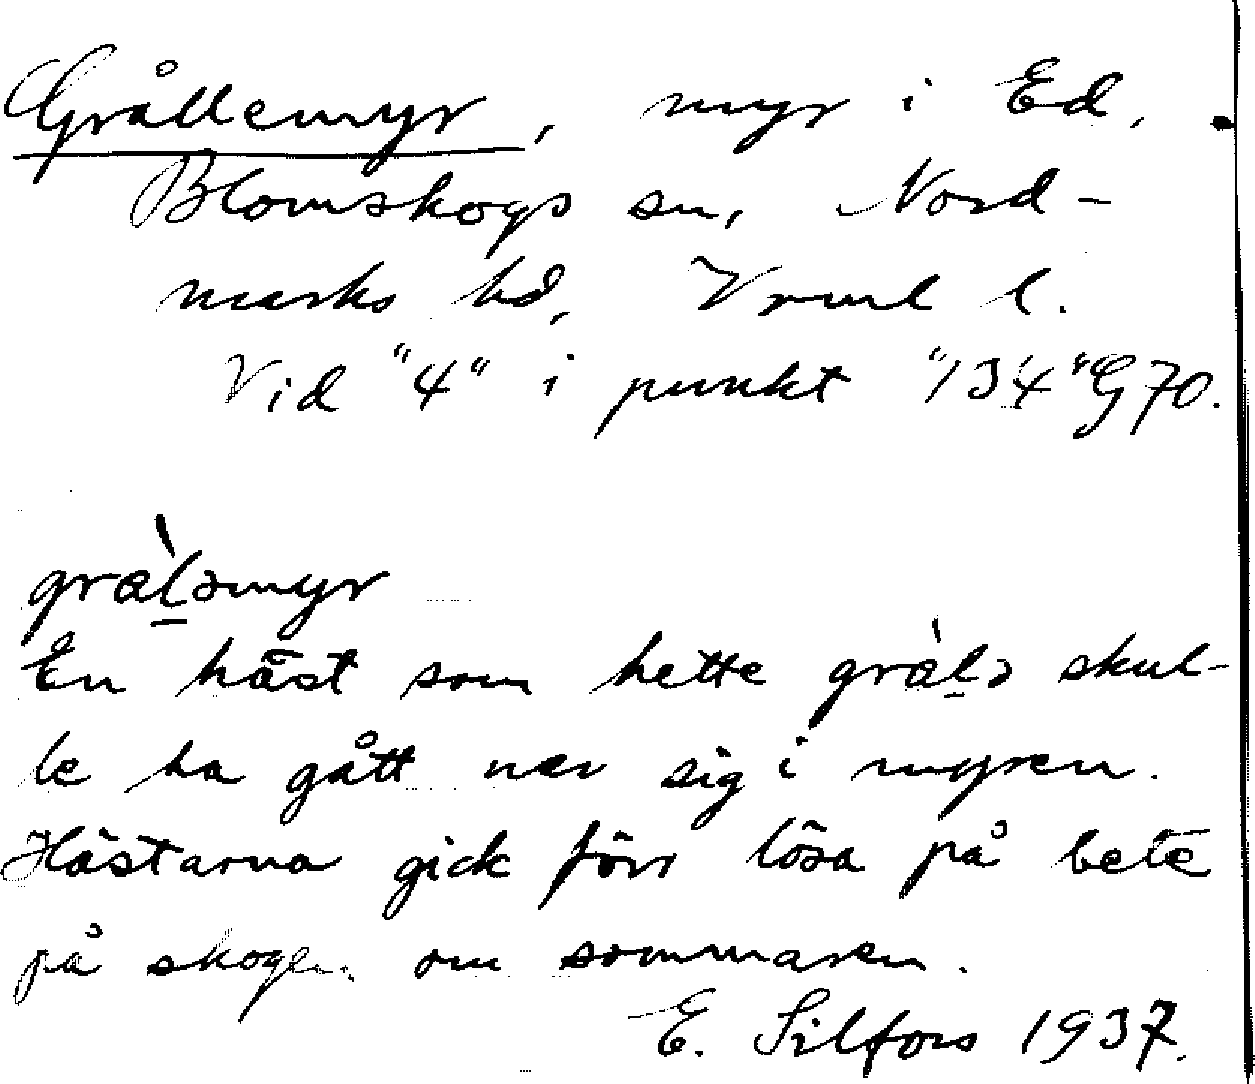 Grållemyr, myr i Ed,
Blomskogs sn, Nord-
marks hd, Vrml l.
Vid "4" i punkt "134" G70.
græ̀l̠əmyr
En häst som hette græ̀l̠ə skul-
le ha gått ner sig i myren.
Hästarna gick förr lösa på bete
på skogen om sommaren.
E. Silfors 1937.